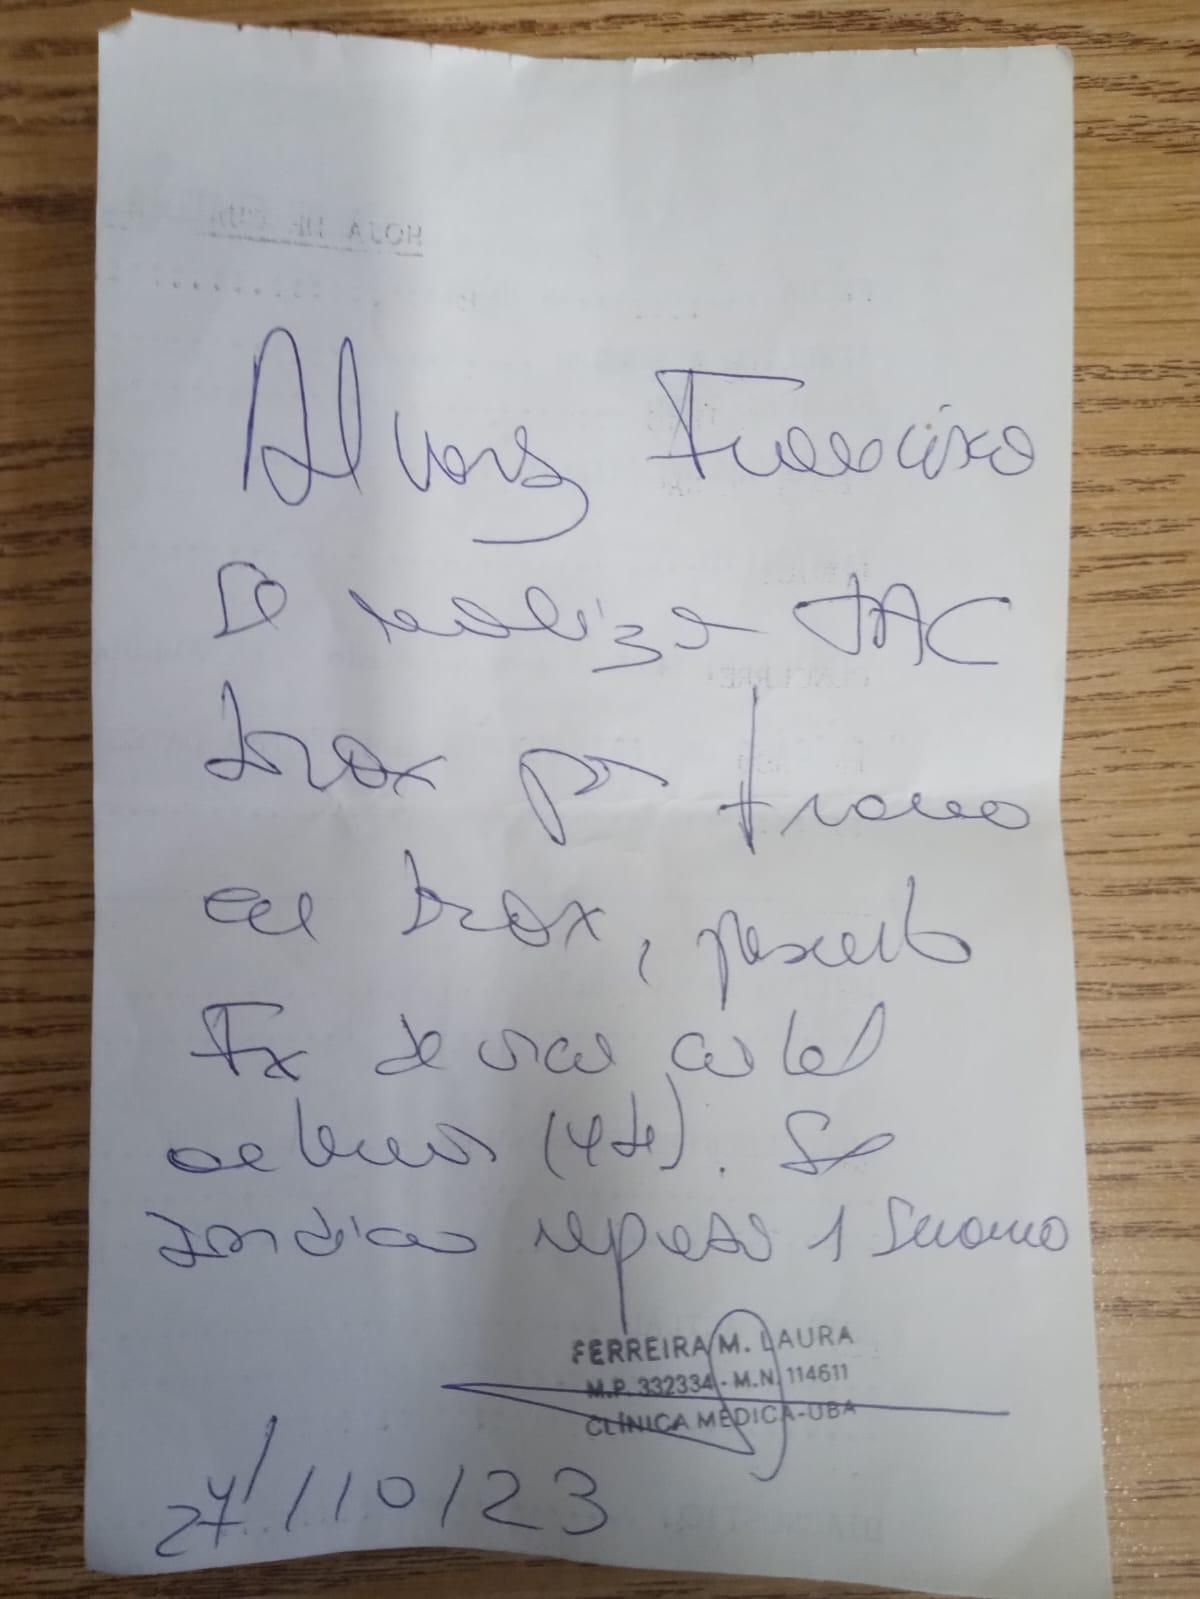 Alvarez Francisco
Se realiza TAC
torax por trauma
en torax, presento
Fx de arcos costal
anterior (4to). Se
Indica reposo 1 semana
FERREIRA M. LAURA
M.P. 332334 - M.N. 114611
CLÍNICA MÉDICA-UBA
27/10/23